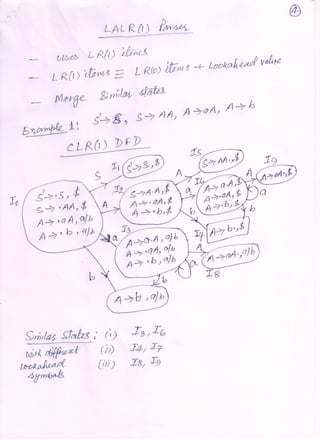 ④
LALR(1) Parser
– uses LR(1) items
– LR(1) items ≡ LR(0) items + Lookahead value
– Merge Similar states
Example 1: S'→S, S→AA, A→aA, A→b
CLR(1) DFD
I0
S'→·S, $
S→·AA, $
A→·aA, a/b
A→·b, a/b
S
I1
S'→S·, $
A
I2
S→A·A, $
A→·aA, $
A→·b, $
A
I5
S→AA·, $
a
I6
A→a·A, $
A→·aA, $
A→·b, $
a
A
I9
A→aA·, $
b
b
I7
A→b·, $
a
I3
A→a·A, a/b
A→·aA, a/b
A→·b, a/b
a
A
A→aA·, a/b
I8
b
b
A→b·, a/b
Similar States ; (i) I3, I6
with different (ii) I4, I7
lookahead (iii) I8, I9
symbols